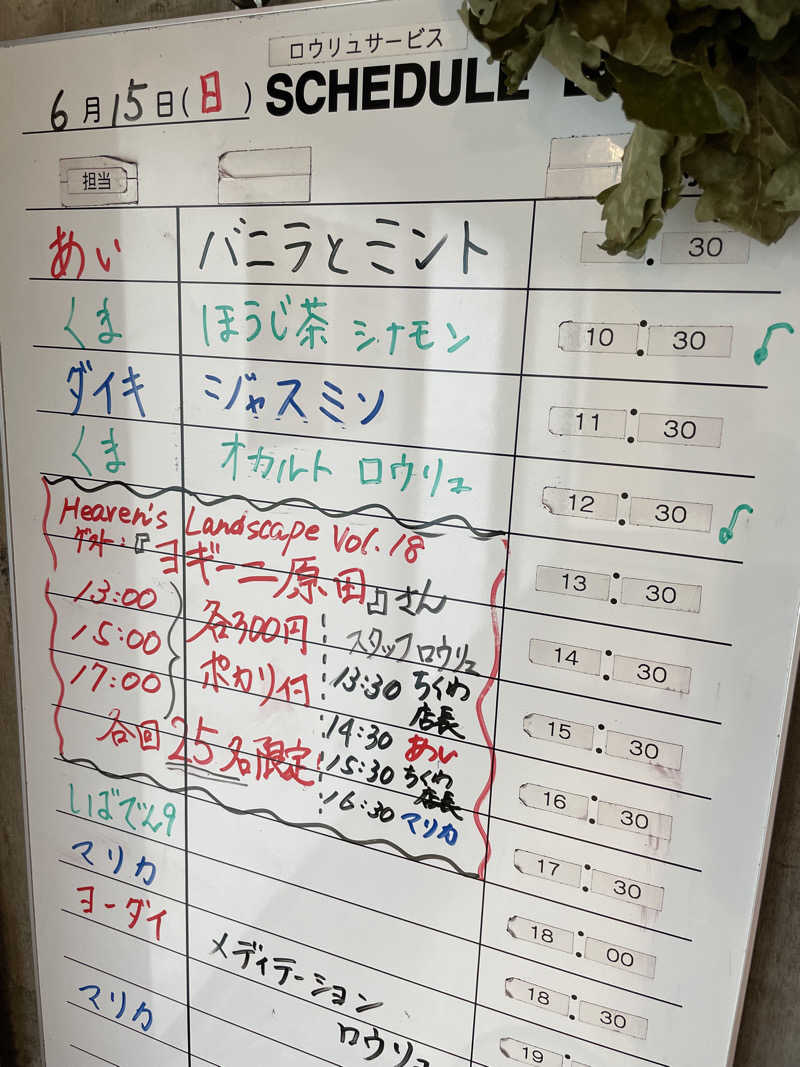 ロウリュサービス
6月15日(日) SCHEDULE
担当
あい バニラとミント 30
くま ほうじ茶 シナモン 10:30
ダイキ ジャスミン 11:30
くま オカルト ロウリュ 12:30
Heaven's Landscape Vol.18
ゲスト:『ヨギーニ原田』さん 13:30
13:00 各300円 スタッフロウリュ 14:30
15:00 ポカリ付 13:30 ちくわ店長 15:30
17:00 14:30 あい
各回25名限定 15:30 ちくわ店長 16:30
16:30 マリカ
いばでん9 17:30
マリカ 18:00
ヨーダイ メディテーション 18:30
マリカ ロウリュ 19: